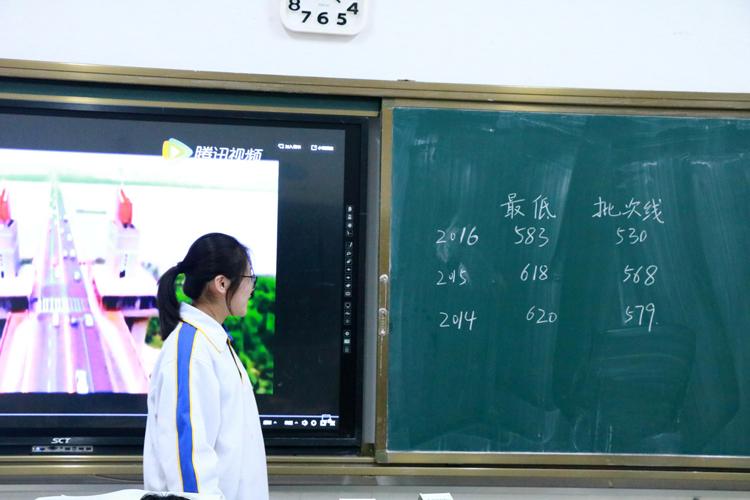 8 7 6 5 4
腾讯视频
最低 批次线
2016 583 530
2015 618 568
2014 620 579
SCT